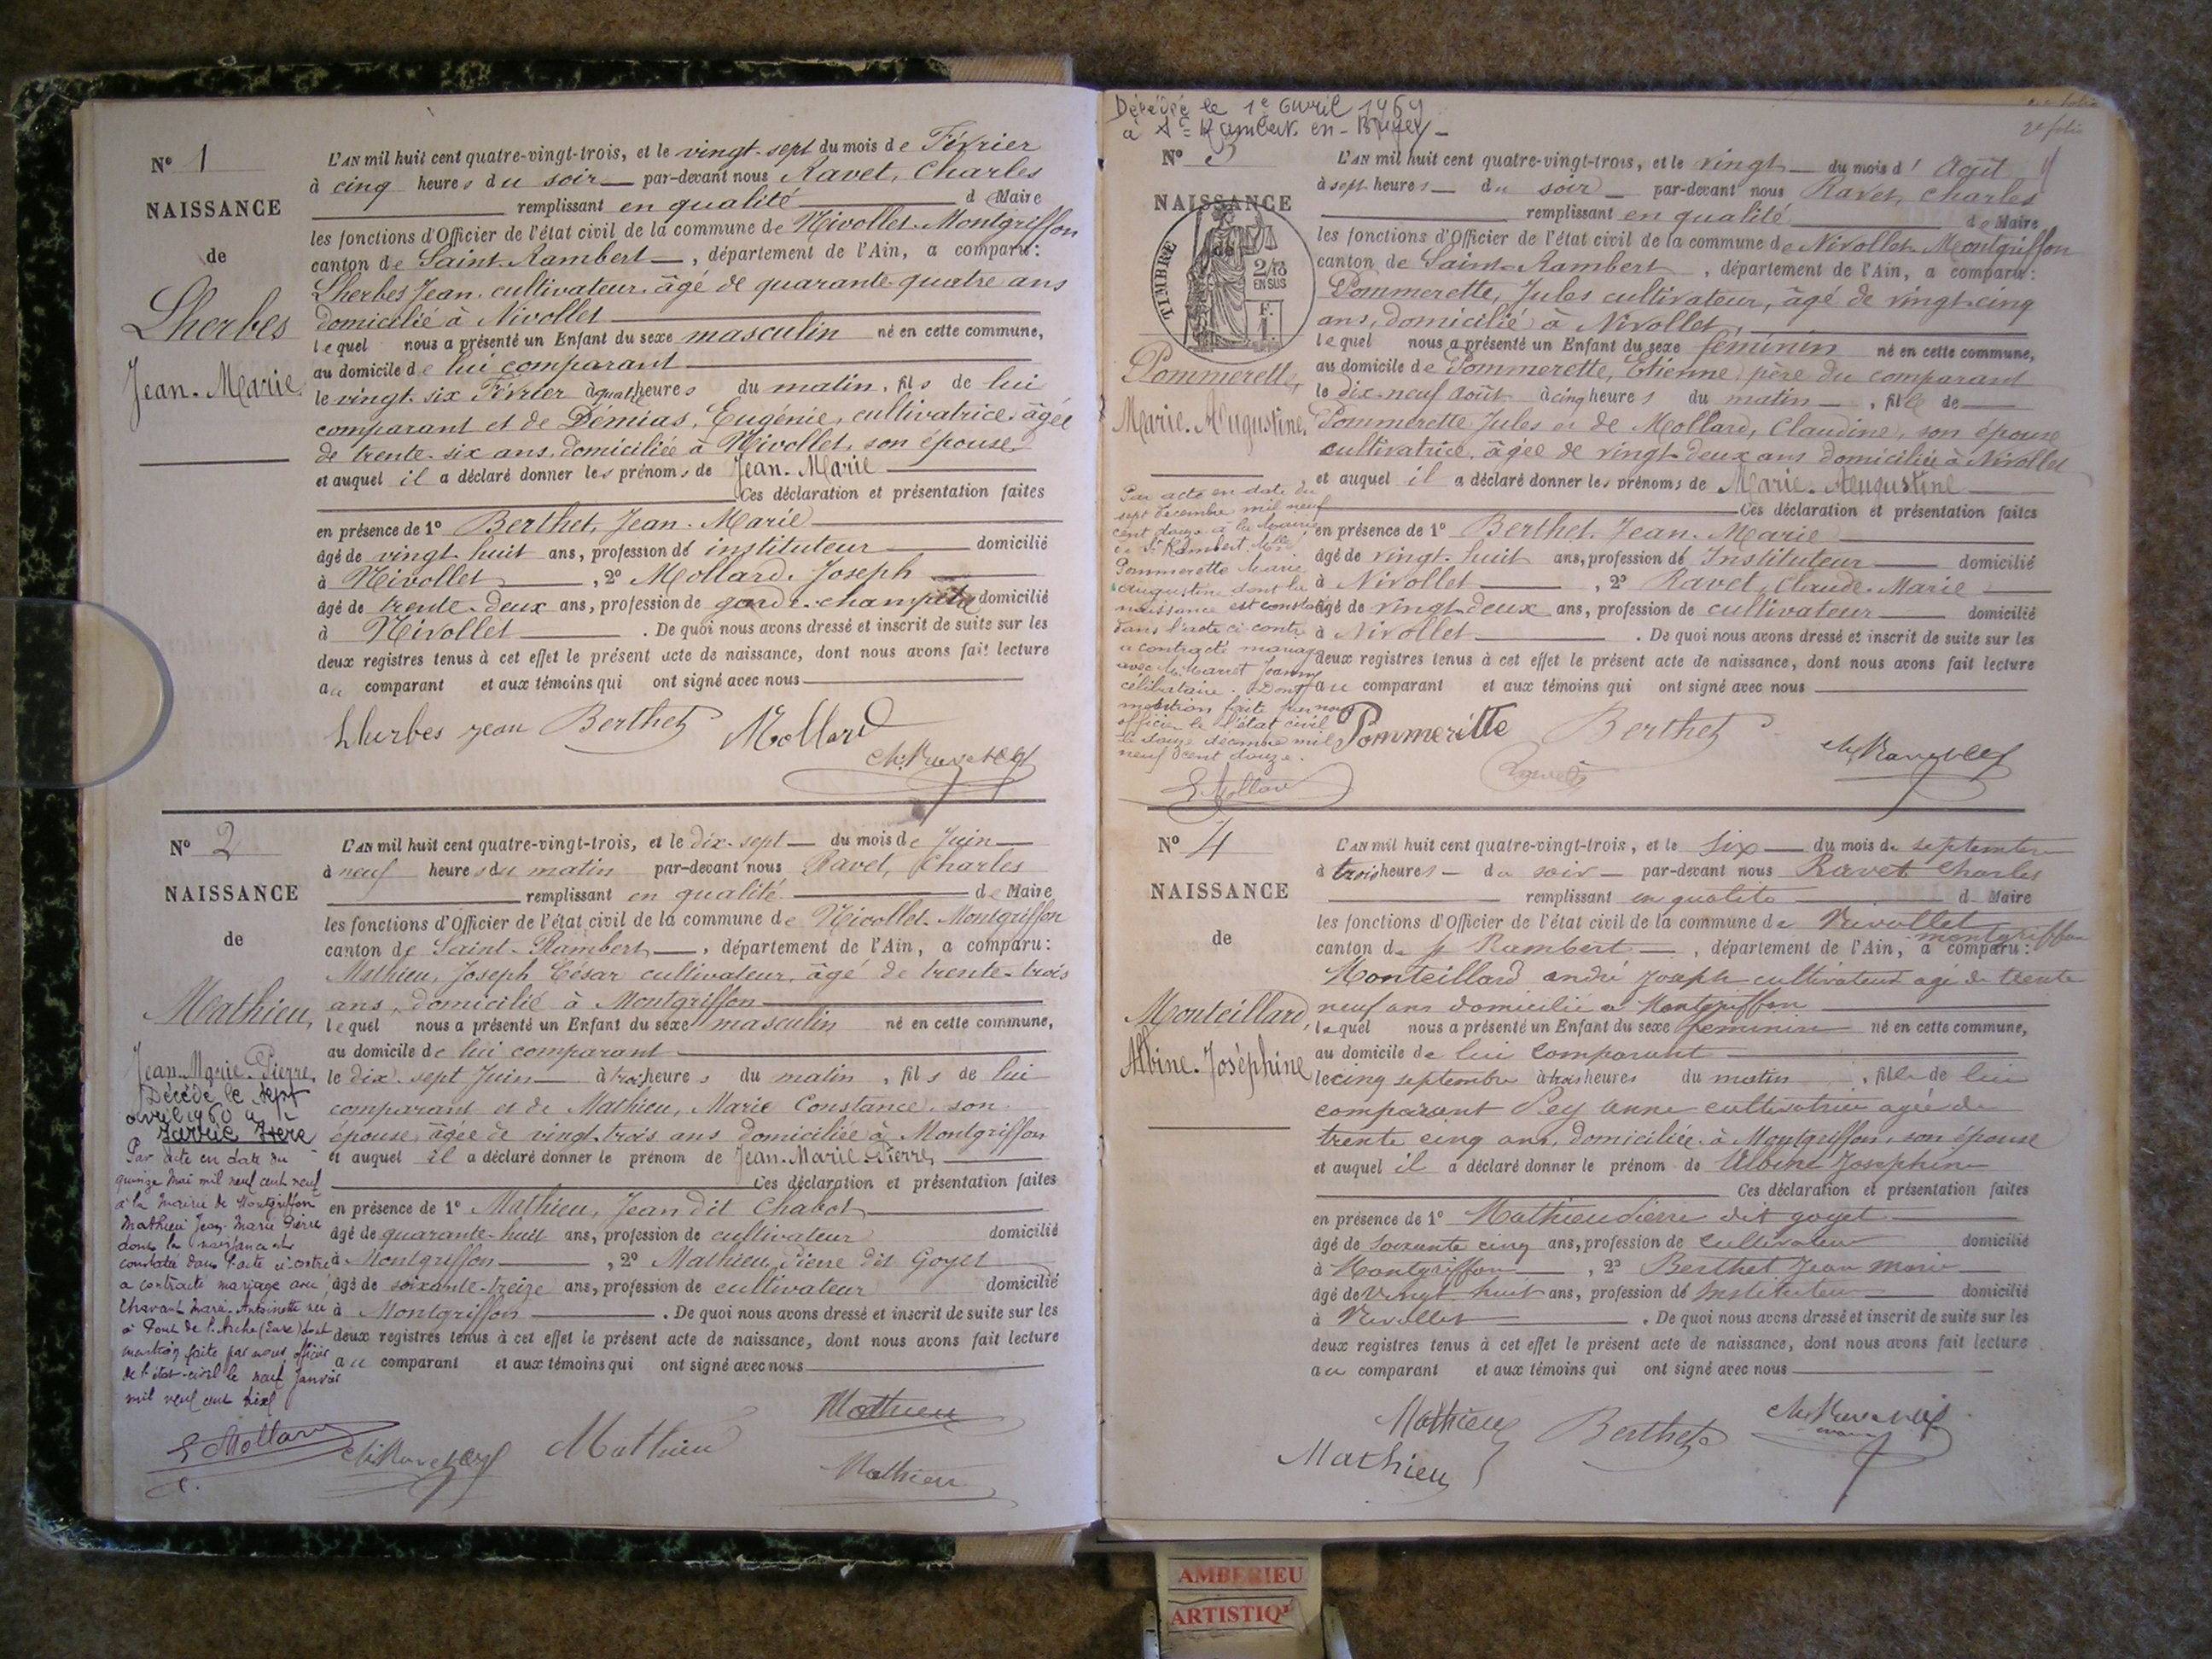 N° 1
NAISSANCE
de
Lherbes
Jean-Marie
L'AN mil huit cent quatre-vingt-trois, et le vingt-sept du mois de Février
à cinq heures du soir par-devant nous Ravet, Charles
remplissant en qualité de Maire
les fonctions d'Officier de l'état civil de la commune de Nivollet-Montgriffon
canton de Saint-Rambert, département de l'Ain, a comparu:
Lherbes Jean, cultivateur, âgé de quarante-quatre ans
domicilié à Nivollet
lequel nous a présenté un Enfant du sexe masculin né en cette commune,
au domicile de lui comparant
le vingt-six Février à quatre heures du matin, fils de lui
comparant et de Démias, Eugénie, cultivatrice, âgée
de trente-six ans, domiciliée à Nivollet, son épouse,
et auquel il a déclaré donner les prénoms de Jean-Marie
Ces déclaration et présentation faites
en présence de 1° Berthet, Jean-Marie
âgé de vingt-huit ans, profession de instituteur domicilié
à Nivollet, 2° Mollard, Joseph
âgé de trente-deux ans, profession de garde-champêtre domicilié
à Nivollet. De quoi nous avons dressé et inscrit de suite sur les
deux registres tenus à cet effet le présent acte de naissance, dont nous avons fait lecture
au comparant et aux témoins qui ont signé avec nous
Lherbes Jean Berthet Mollard
N° 2
NAISSANCE
de
Mathieu,
Jean-Marie-Pierre
Décédé le sept
avril 1960 à
Par acte en date du
quinze Mai mil neuf cent neuf
à la Mairie de Montgriffon
Mathieu Jean-Marie Pierre
dont la naissance est
constatée dans l'acte ci-contre
a contracté mariage avec
Chavant Marie-Antoinette née
à Pont de l'Arche (Eure) dont
mention faite par nous, officier
de l'état-civil le neuf Janvier
mil neuf cent dix
E Mollard
L'AN mil huit cent quatre-vingt-trois, et le dix-sept du mois de Juin
à neuf heures du matin par-devant nous Ravet, Charles
remplissant en qualité de Maire
les fonctions d'Officier de l'état civil de la commune de Nivollet-Montgriffon
canton de Saint-Rambert, département de l'Ain, a comparu:
Mathieu, Joseph César cultivateur, âgé de trente-trois
ans, domicilié à Montgriffon
lequel nous a présenté un Enfant du sexe masculin né en cette commune,
au domicile de lui comparant
le dix-sept Juin à trois heures du matin, fils de lui
comparant et de Mathieu, Marie Constance, son
épouse, âgée de vingt-trois ans domiciliée à Montgriffon
et auquel il a déclaré donner le prénom de Jean-Marie-Pierre,
Ces déclaration et présentation faites
en présence de 1° Mathieu, Jean dit Chabot
âgé de quarante-huit ans, profession de cultivateur domicilié
à Montgriffon, 2° Mathieu, Pierre dit Goyet
âgé de soixante-treize ans, profession de cultivateur domicilié
à Montgriffon. De quoi nous avons dressé et inscrit de suite sur les
deux registres tenus à cet effet le présent acte de naissance, dont nous avons fait lecture
au comparant et aux témoins qui ont signé avec nous
Mathieu
Mathieu
Mathieu
Décédée le 1e Avril 1969
à St-Rambert-en-Bugey
2e folio
N° 3
NAISSANCE
de
TIMBRE
2/10
EN SUS
F.
Pommerette,
Marie-Augustine,
Par acte en date du
sept décembre mil neuf
cent douze à la Mairie
de St Rambert, Mlle
Pommerette Marie
Augustine dont la
naissance est constatée
dans l'acte ci-contre
a contracté mariage
avec M. Marret Jeanny
célibataire. Dont
mention faite par nous
officier de l'état civil
le douze décembre mil
neuf cent douze.
E Mollard
L'AN mil huit cent quatre-vingt-trois, et le vingt du mois d'Août
à sept heures du soir par-devant nous Ravet, Charles
remplissant en qualité de Maire
les fonctions d'Officier de l'état civil de la commune de Nivollet-Montgriffon
canton de Saint-Rambert, département de l'Ain, a comparu:
Pommerette, Jules cultivateur, âgé de vingt-cinq
ans, domicilié à Nivollet,
lequel nous a présenté un Enfant du sexe féminin né en cette commune,
au domicile de Pommerette, Etienne, père du comparant
le dix-neuf Août à cinq heures du matin, fille de
Pommerette Jules et de Mollard, Claudine, son épouse
cultivatrice, âgée de vingt-deux ans domiciliée à Nivollet
et auquel il a déclaré donner les prénoms de Marie-Augustine
Ces déclaration et présentation faites
en présence de 1° Berthet, Jean-Marie
âgé de vingt-huit ans, profession de Instituteur domicilié
à Nivollet, 2° Ravet, Claude-Marie
âgé de vingt-deux ans, profession de cultivateur domicilié
à Nivollet. De quoi nous avons dressé et inscrit de suite sur les
deux registres tenus à cet effet le présent acte de naissance, dont nous avons fait lecture
au comparant et aux témoins qui ont signé avec nous
Pommerette Berthet
N° 4
NAISSANCE
de
Monteillard,
Albine-Joséphine
L'AN mil huit cent quatre-vingt-trois, et le six du mois de septembre
à trois heures du soir par-devant nous Ravet Charles
remplissant en qualité d Maire
les fonctions d'Officier de l'état civil de la commune de Nivollet
montgriffon
canton de St Rambert, département de l'Ain, a comparu:
Monteillard andré joseph cultivateur agé de trente
neuf ans domicilié a Montgriffon
lequel nous a présenté un Enfant du sexe feminin né en cette commune,
au domicile de lui comparant
le cinq septembre à trois heures du matin, fille de lui
comparant Pey anne cultivatrice agée de
trente cinq ans, domiciliée à Montgriffon, son épouse
et auquel il a déclaré donner le prénom de Albine Josephine
Ces déclaration et présentation faites
en présence de 1° Mathieu Pierre dit goyet
âgé de soixante cinq ans, profession de cultivateur domicilié
à Montgriffon, 2° Berthet Jean Marie
âgé de vingt huit ans, profession de Instituteur domicilié
à Nivollet. De quoi nous avons dressé et inscrit de suite sur les
deux registres tenus à cet effet le présent acte de naissance, dont nous avons fait lecture
au comparant et aux témoins qui ont signé avec nous
Mathieu Berthet
Mathieu
AMBERIEU
ARTISTIQ